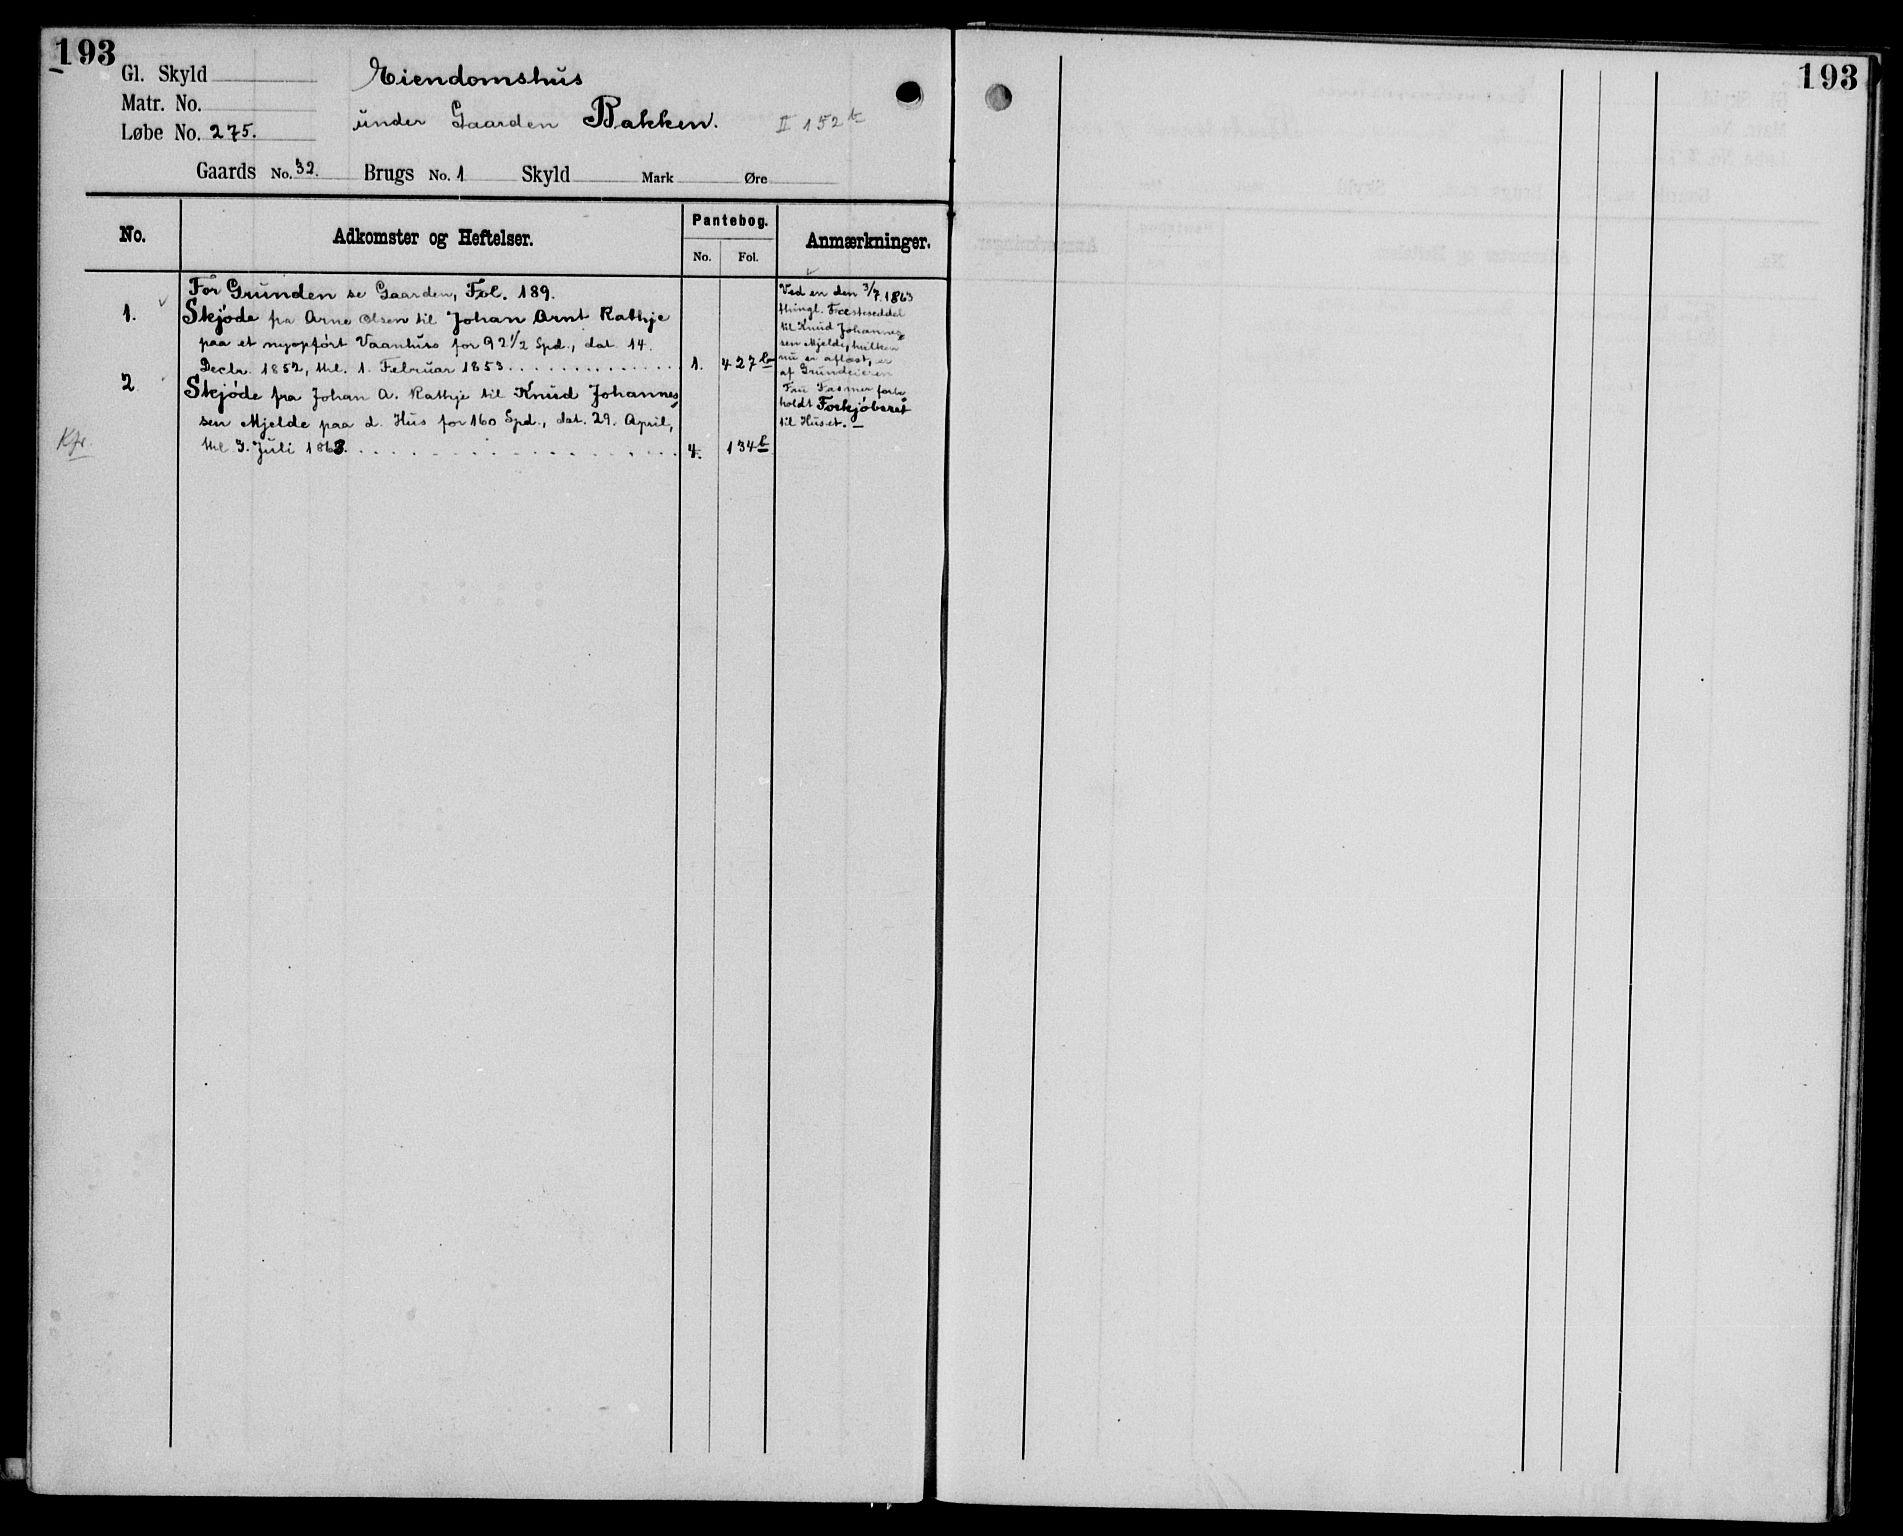 193
193
Gl. Skyld
Matr. No.
Løbe No. 275.
Eiendomshus
under Gaarden Bakken.
II 152 b
Gaards No. 32. Brugs No. 1 Skyld Mark Øre
No. Adkomster og Heftelser. Pantebog. Anmærkninger.
No. Fol.
For Grunden se Gaarden, Fol. 189.
1. Skjøde fra Arne Olsen til Johan Arnt Rathje
paa et nyopført Vaanhus for 92 1/2 Spd., dat. 14.
Decbr. 1852, thl. 1. Februar 1853. 1. 427 b
2 Skjøde fra Johan A. Rathje til Knud Johannes=
sen Mjelde paa d. Hus for 160 Spd., dat. 29. April,
thl 3. Juli 1863. 4. 134 b
Kfr.
Ved en den 3/7 1863
thingl. Fæsteseddel
til Knud Johannes=
sen Mjelde, hvilken
nu er aflæst, er
af Grundeieren
Fru Fasmer forbe=
holdt Forkjøbsret
til Huset. —